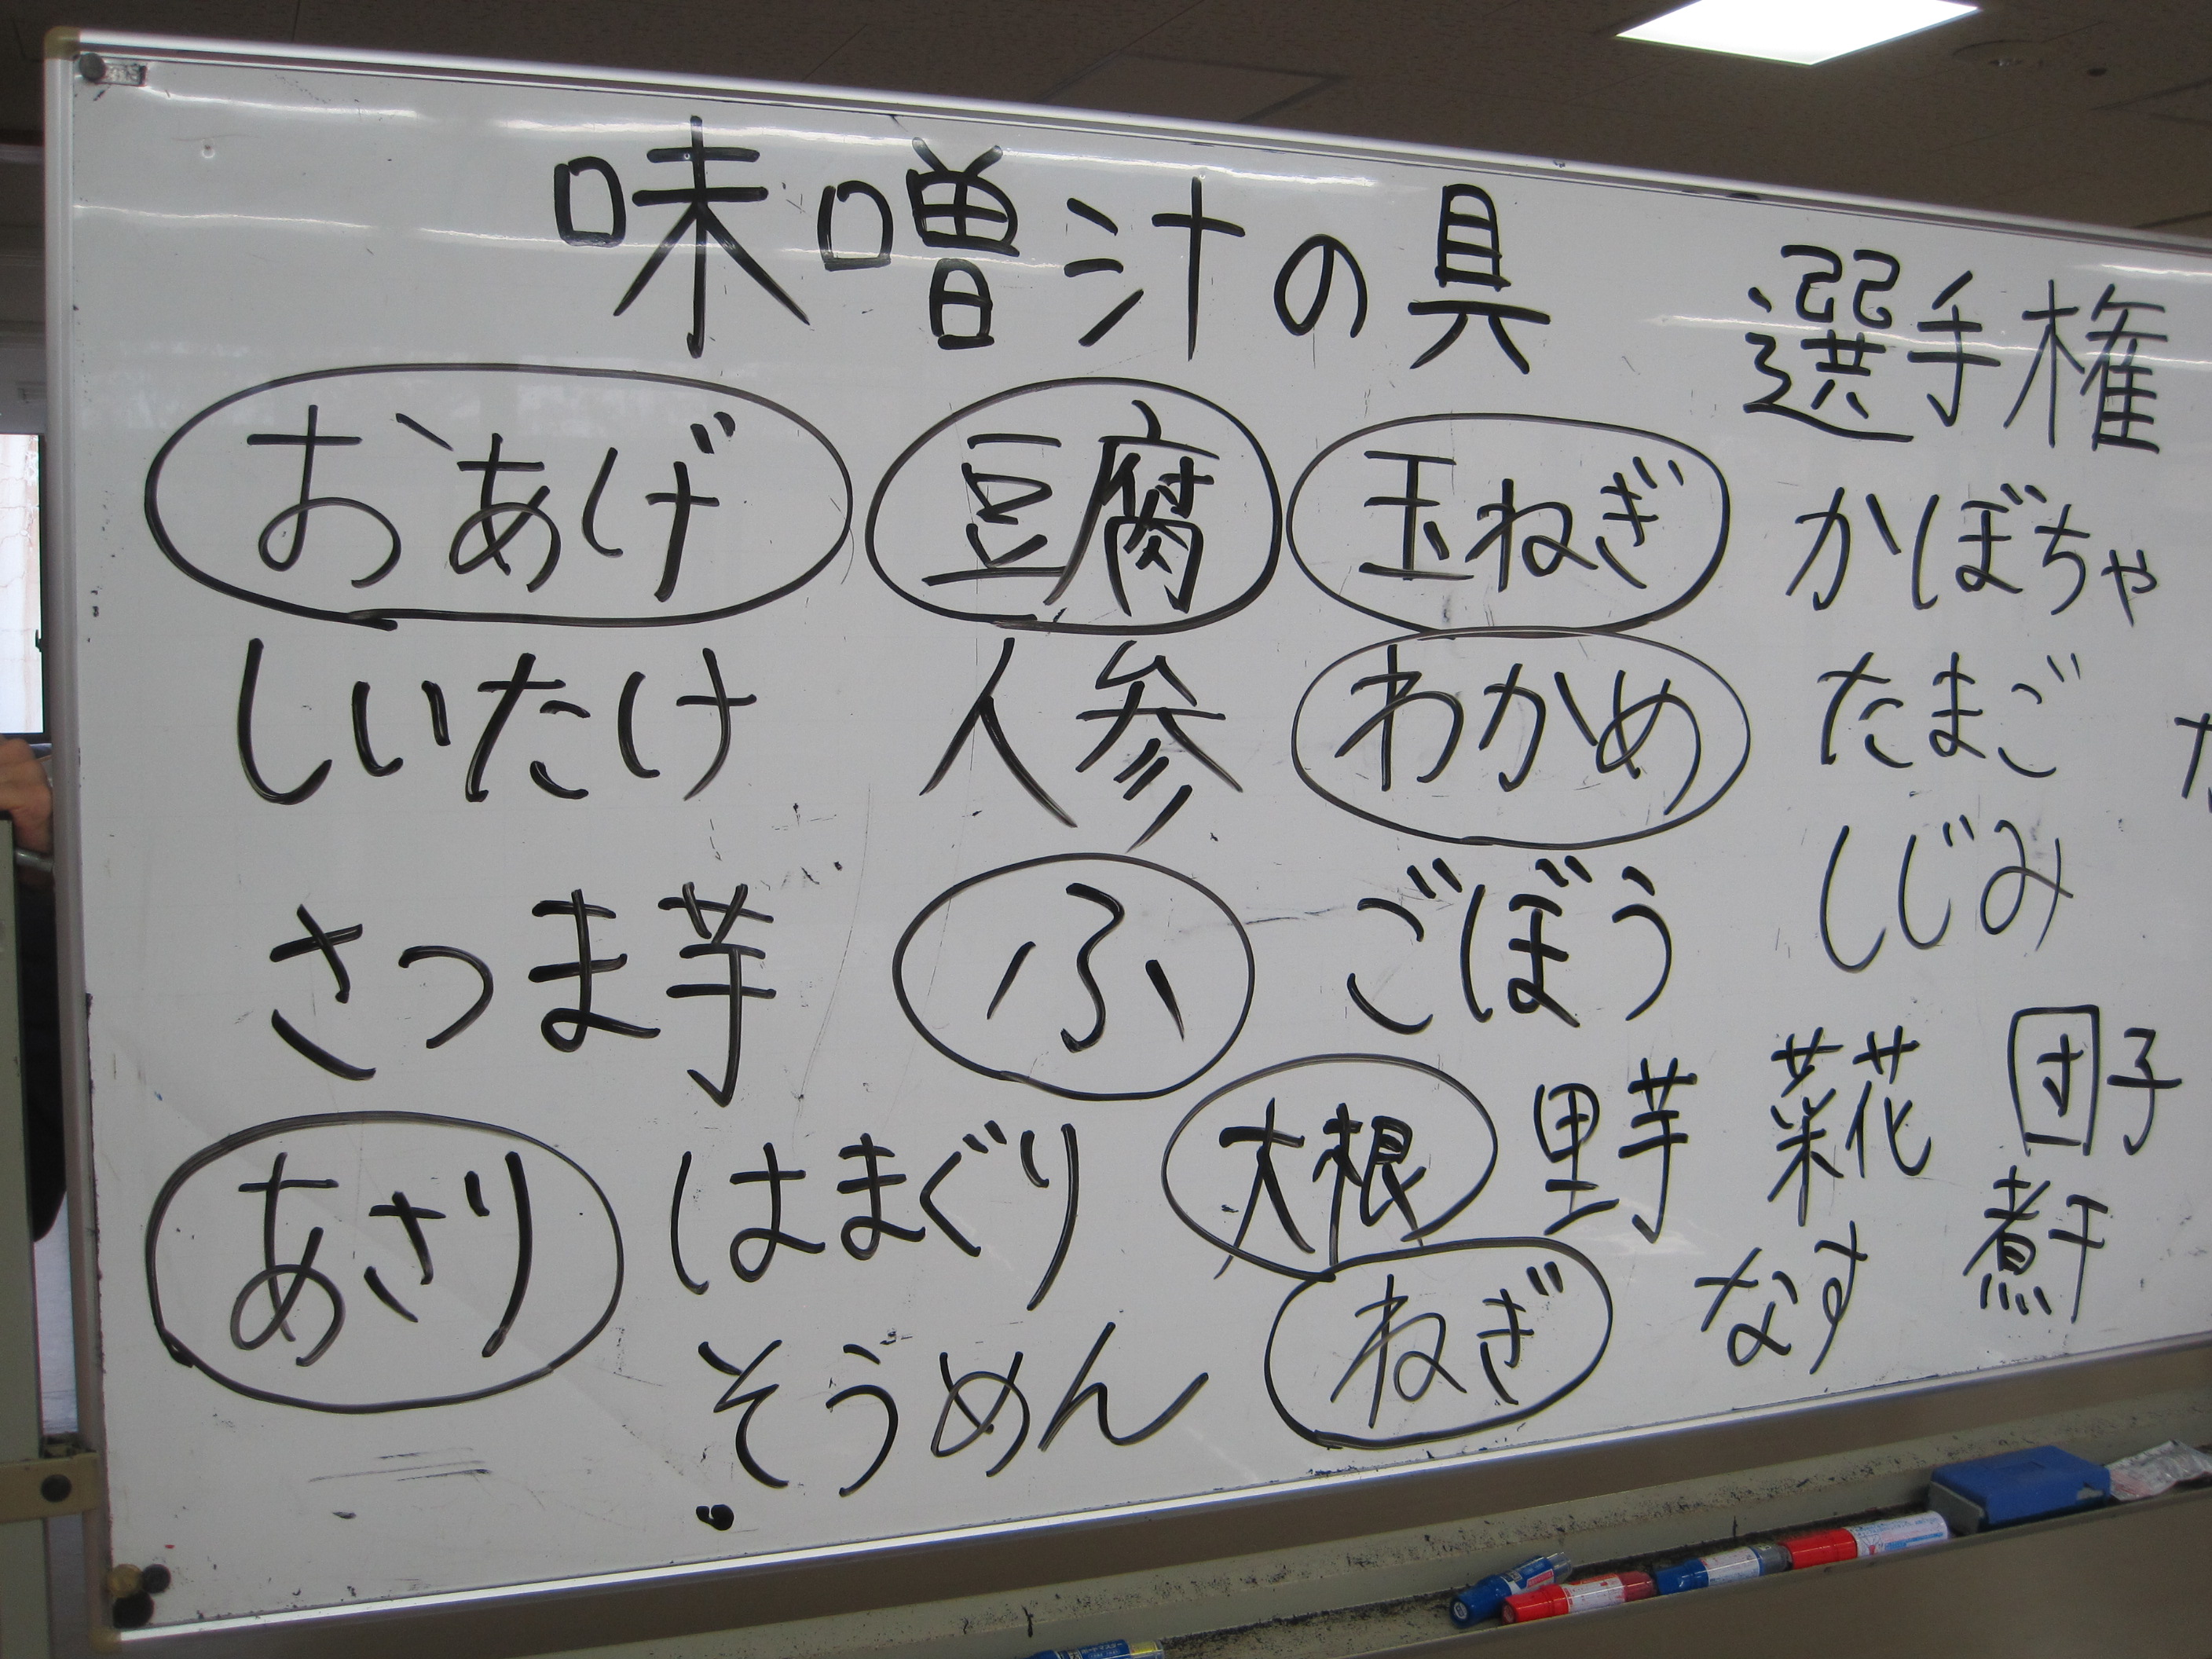 味噌汁の具 選手権
おあげ 豆腐 玉ねぎ かぼちゃ
しいたけ 人参 わかめ たまご
さつま芋 ふ ごぼう しじみ
あさり はまぐり 大根 里芋 菜花 団子
そうめん ねぎ なす 煮干